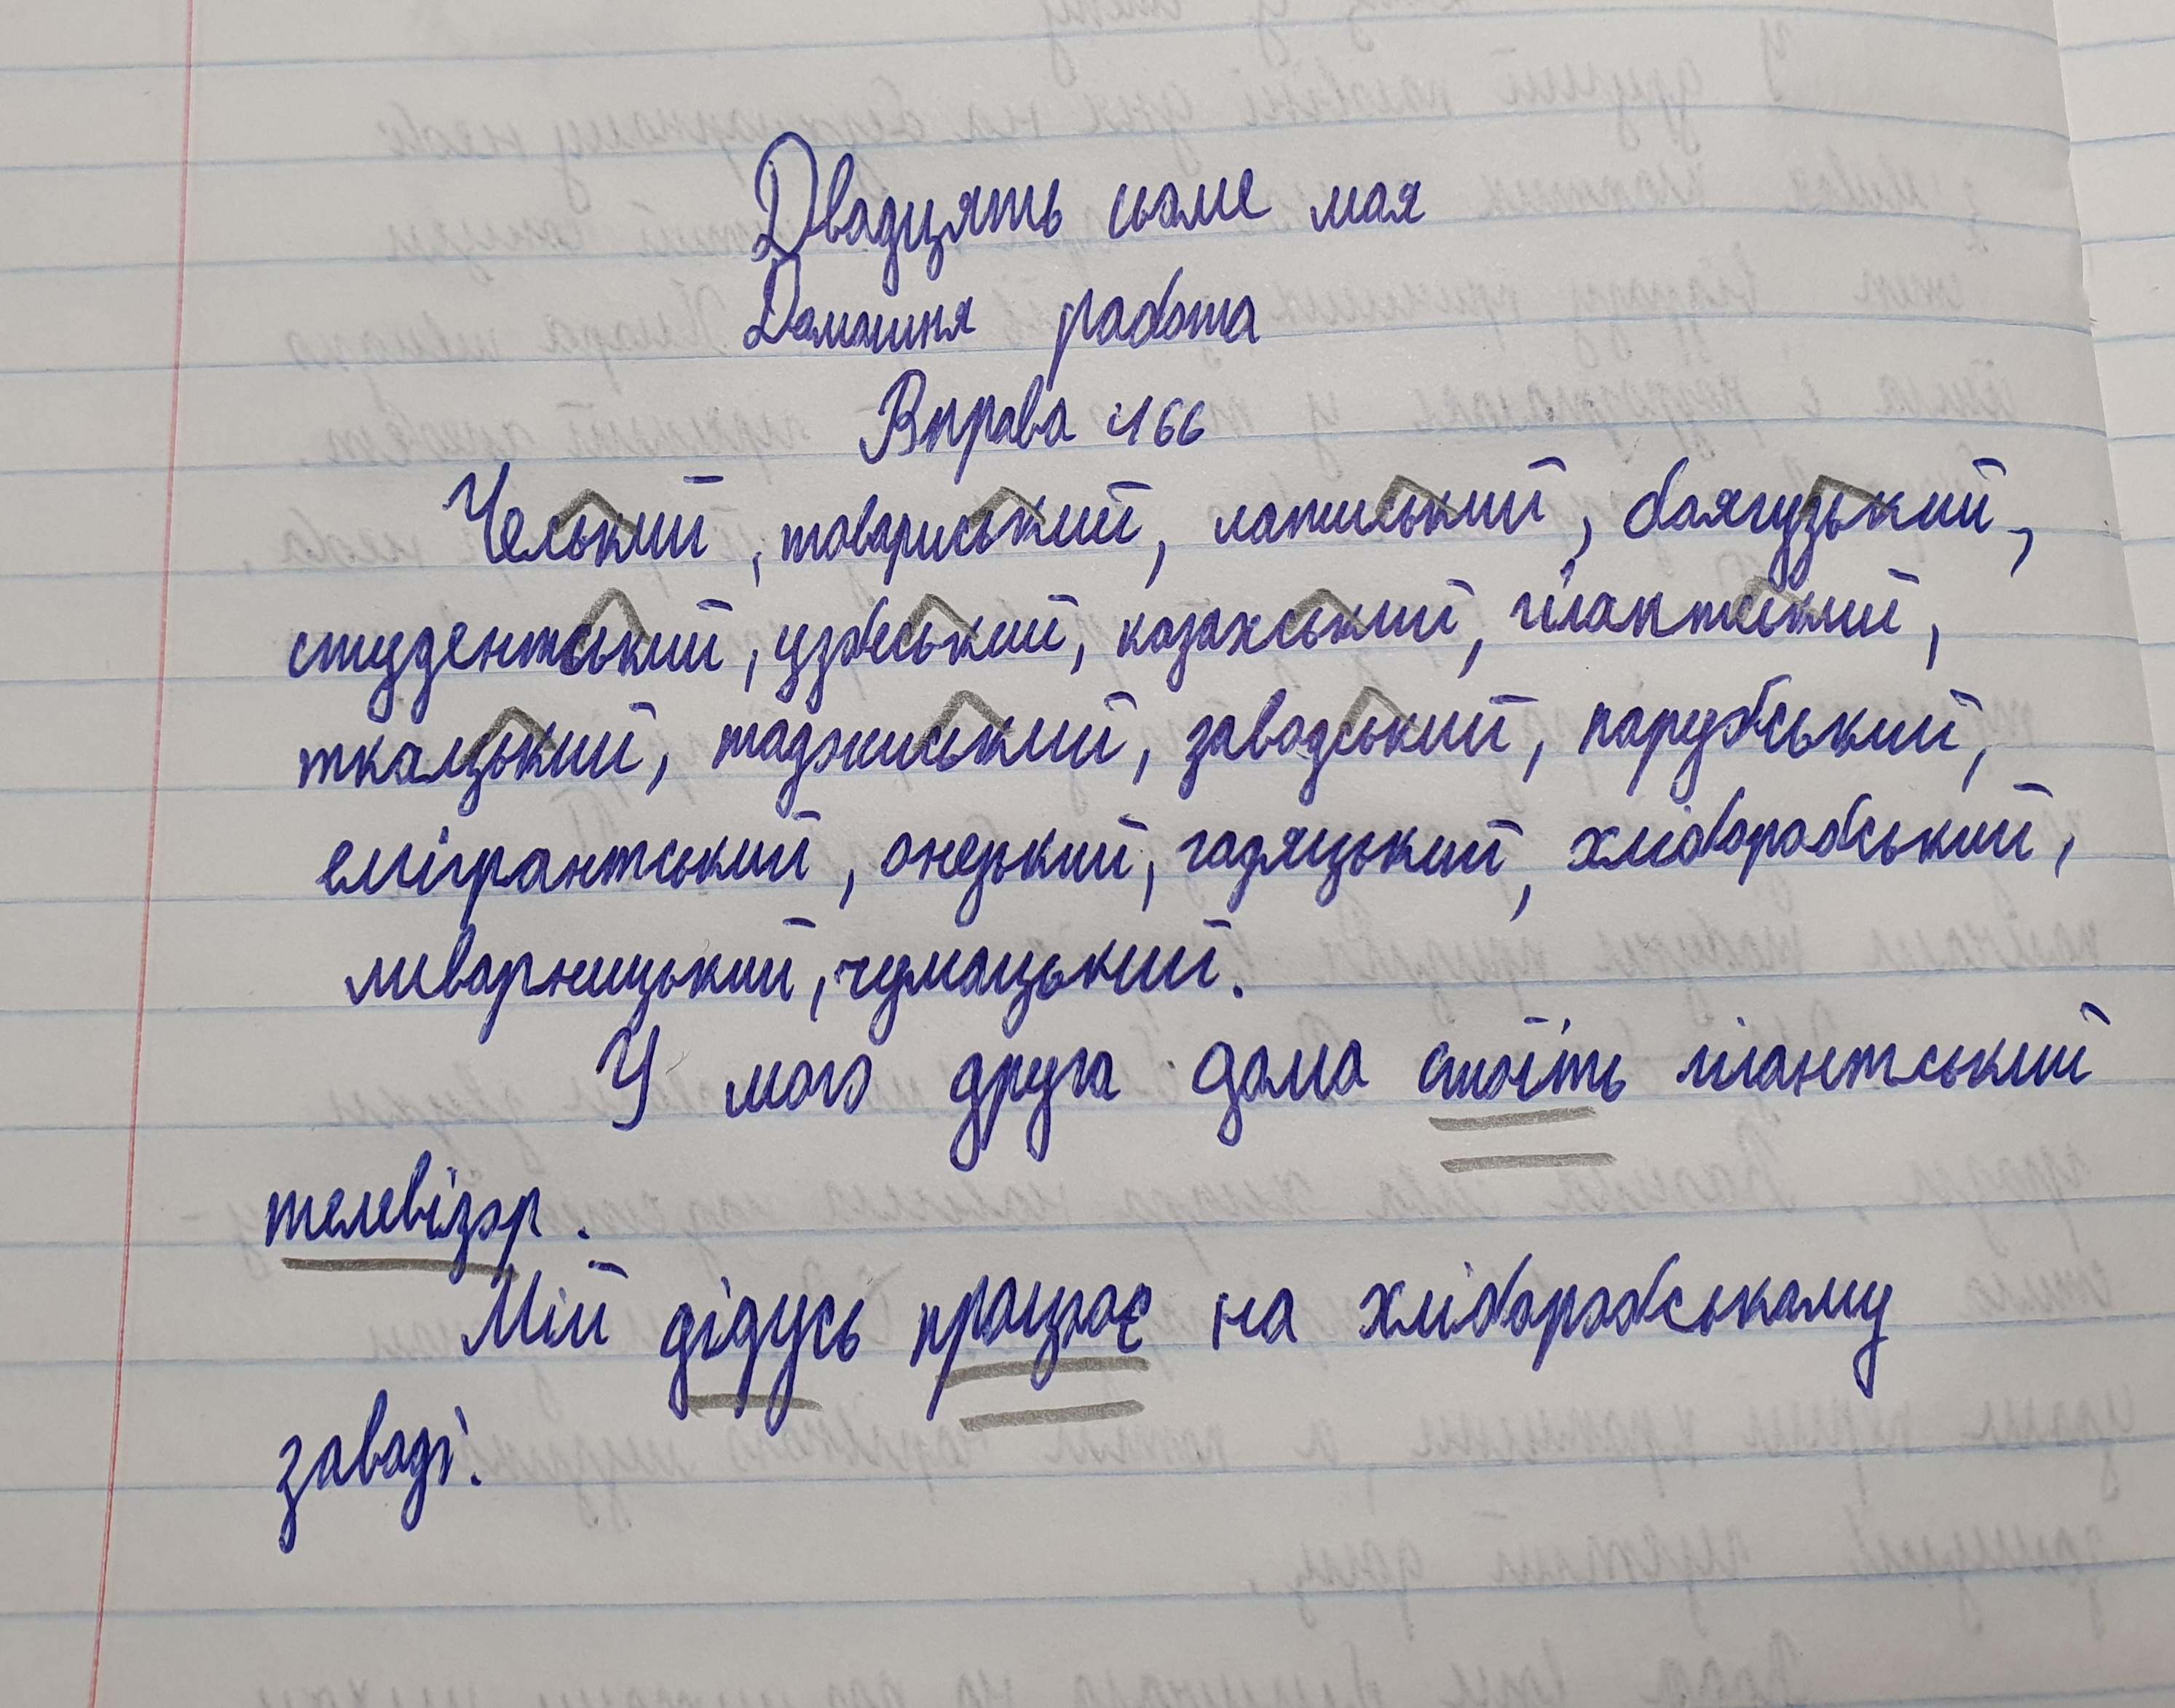 Двадцять сьоме мая
Домашня работа
Вправа 166
Чеський, товариський, латиський, боягузький,
студентський, узбеський, казахський, гігантський,
ткацький, таджиський, заводський, парубський,
емігрантський, онезький, гадяцький, хліборобський,
ливарницький, чумацький.
У мого друга дома стоїть гігантський
телевізор.
Мій дідусь працює на хліборобському
заводі.